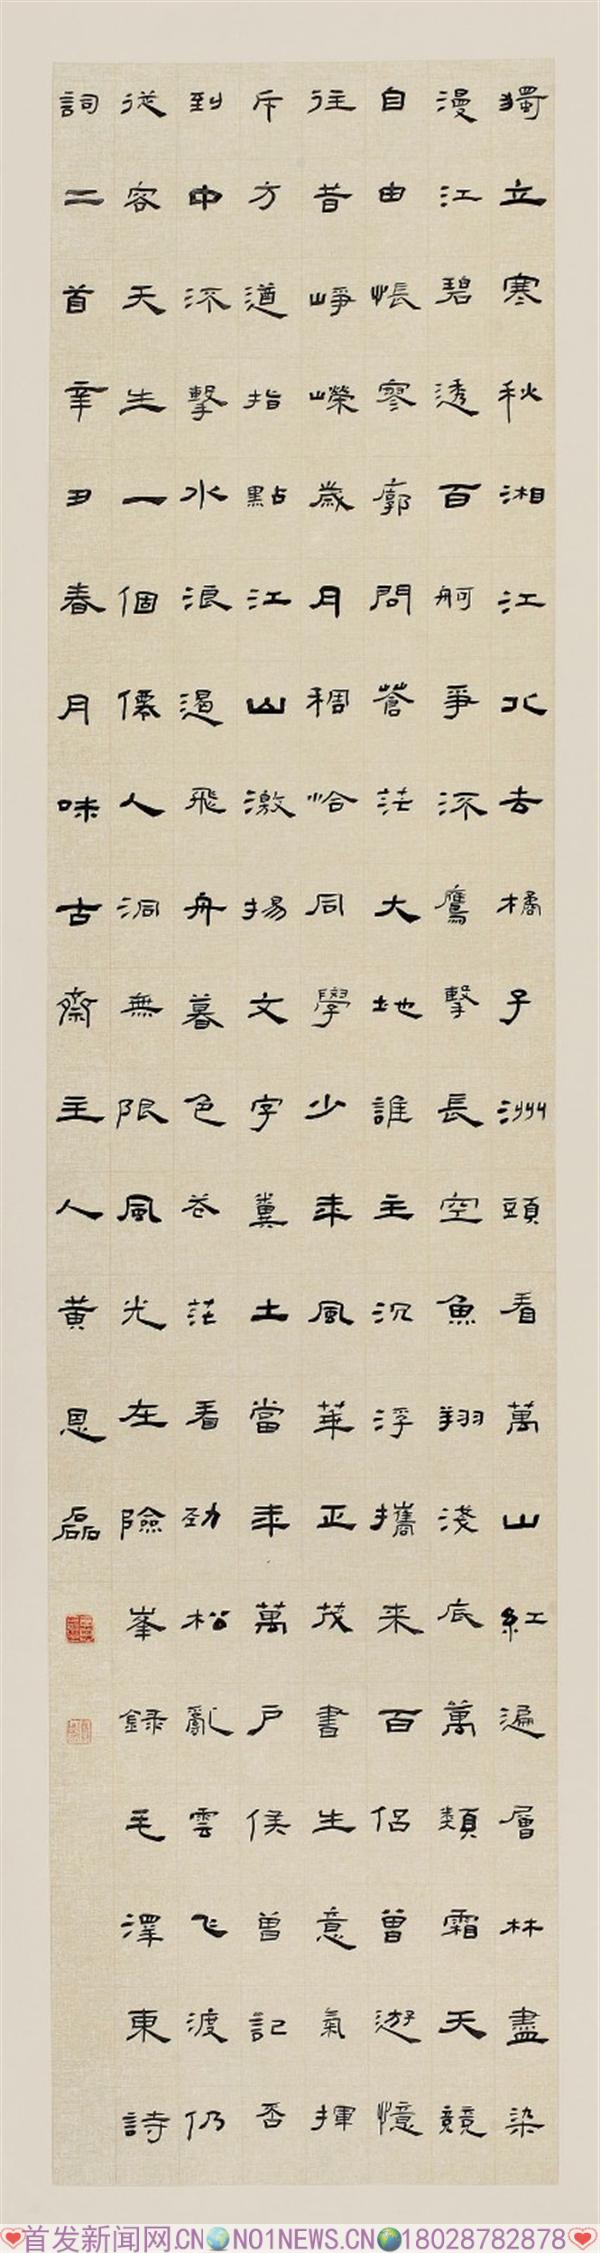 獨立寒秋湘江北去橘子洲頭看萬山紅遍層林盡染
漫江碧透百舸爭流鷹擊長空魚翔淺底萬類霜天競
自由悵寥廓問蒼茫大地誰主沉浮攜来百侶曾遊憶
往昔崢嶸歲月稠恰同學少年風華正茂書生意氣揮
斥方遒指點江山激揚文字糞土當年萬戶侯曾記否
到中流擊水浪遏飛舟暮色苍茫看勁松亂雲飞渡仍
從容天生一個僊人洞無限風光在險峯錄毛澤東詩
詞二首辛丑春月味古齋主人黃恩磊
首发新闻网.CN NO1NEWS.CN 18028782878